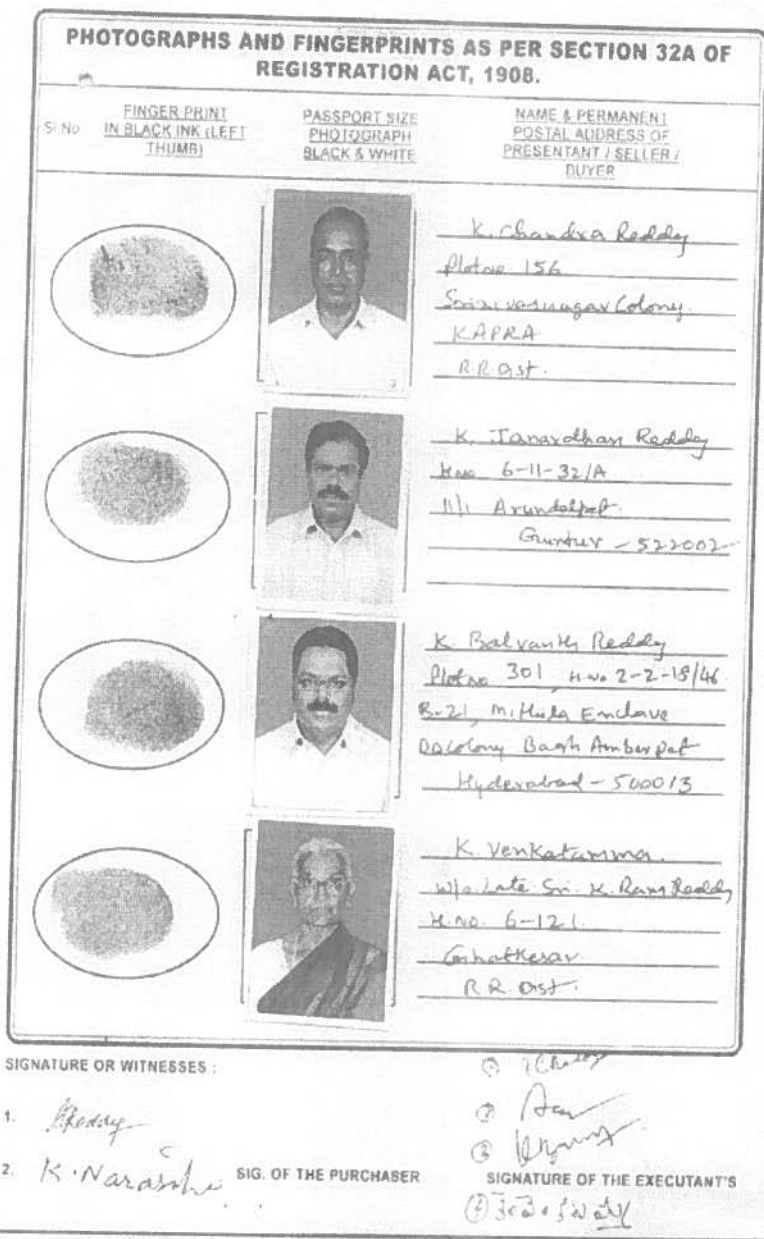 PHOTOGRAPHS AND FINGERPRINTS AS PER SECTION 32A OF
REGISTRATION ACT, 1908.
Sl.No.
FINGER PRINT
IN BLACK INK (LEFT
THUMB)
PASSPORT SIZE
PHOTOGRAPH
BLACK & WHITE
NAME & PERMANENT
POSTAL ADDRESS OF
PRESENTANT / SELLER /
BUYER
K. Chandra Reddy
Plot no 156
Srinivasnagar Colony.
KAPRA
R.R. Dist.
K. Janardhan Reddy
H.no 6-11-32/A
11/1 Arundelpet.
Guntur - 522002
K. Balvanth Reddy
Plot no 301, H.no 2-2-18/46
B-21, Mithila Enclave
DD colony Bagh Amberpet
Hyderabad - 500013
K. Venkatamma.
W/o. Late Sri. K. Ram Reddy
H.no. 6-121.
Ghatkesar
R.R. Dist.
SIGNATURE OR WITNESSES :
1. Reddy
2. K. Narasimha
SIG. OF THE PURCHASER
SIGNATURE OF THE EXECUTANT'S